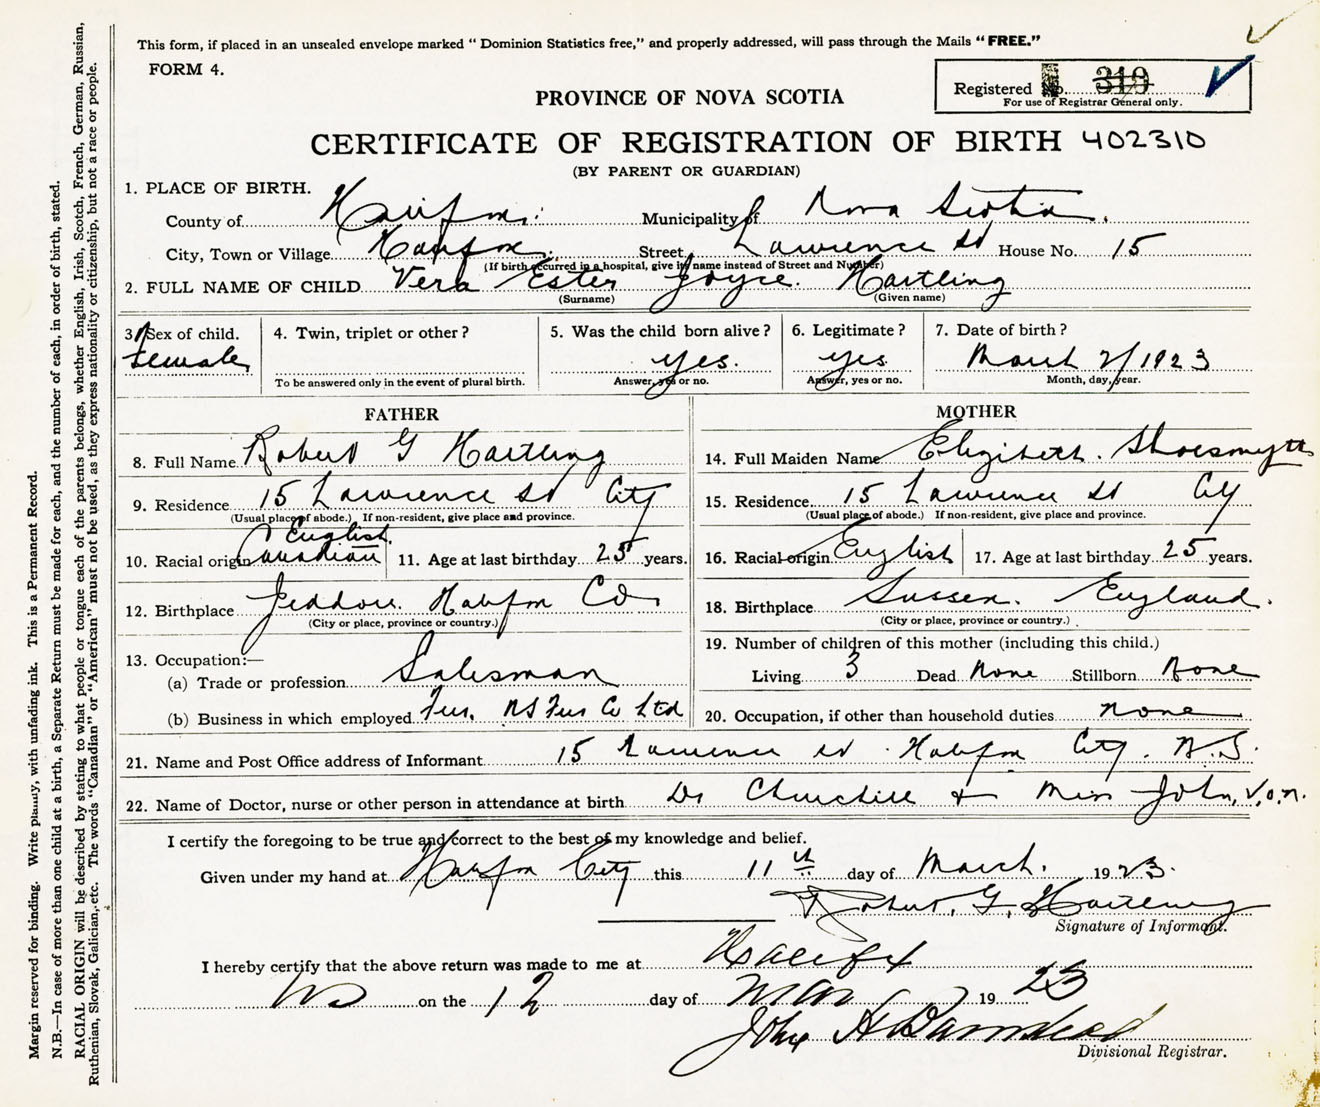 This form, if placed in an unsealed envelope marked "Dominion Statistics free," and properly addressed, will pass through the Mails "FREE."
FORM 4.
Registered No. 319
For use of Registrar General only.
PROVINCE OF NOVA SCOTIA
CERTIFICATE OF REGISTRATION OF BIRTH 402310
(BY PARENT OR GUARDIAN)
1. PLACE OF BIRTH.
County of Halifax. Municipality of Nova Scotia.
City, Town or Village Halifax. Street Lawrence St House No. 15
(If birth occurred in a hospital, give its name instead of Street and Number)
2. FULL NAME OF CHILD Vera Ester Joyce. Hartling
(Surname) (Given name)
3. Sex of child. 4. Twin, triplet or other? 5. Was the child born alive? 6. Legitimate? 7. Date of birth?
Female yes. yes March 2/1923
To be answered only in the event of plural birth. Answer, yes or no. Answer, yes or no. Month, day, year.
FATHER
8. Full Name Robert G Hartling
9. Residence 15 Lawrence St City
(Usual place of abode.) If non-resident, give place and province.
English
10. Racial origin Canadian 11. Age at last birthday 25 years.
12. Birthplace Jeddore. Halifax Co
(City or place, province or country.)
13. Occupation:—
(a) Trade or profession Salesman
(b) Business in which employed Fur. NS Fur Co Ltd
MOTHER
14. Full Maiden Name Elizibeth. Shoesmyth
15. Residence 15 Lawrence St City
(Usual place of abode.) If non-resident, give place and province.
16. Racial origin English 17. Age at last birthday 25 years.
18. Birthplace Sussex. England.
(City or place, province or country.)
19. Number of children of this mother (including this child.)
Living 3 Dead None Stillborn None
20. Occupation, if other than household duties none
21. Name and Post Office address of Informant 15 Lawrence St Halifax City. N.S.
22. Name of Doctor, nurse or other person in attendance at birth Dr Churchill + Miss John, V.o.n.
I certify the foregoing to be true and correct to the best of my knowledge and belief.
Given under my hand at Halifax City this 11th day of March. 1923.
Robert. G. Hartling
Signature of Informant.
I hereby certify that the above return was made to me at Halifax
NS on the 12 day of Mar 1923
John H Barnstead
Divisional Registrar.
Margin reserved for binding. Write plainly, with unfading ink. This is a Permanent Record.
N.B.—In case of more than one child at a birth, a Separate Return must be made for each, and the number of each, in order of birth, stated.
RACIAL ORIGIN will be described by stating to what people or tongue each of the parents belongs, whether English, Irish, Scotch, French, German, Russian,
Ruthenian, Slovak, Galician, etc. The words "Canadian" or "American" must not be used, as they express nationality or citizenship, but not a race or people.